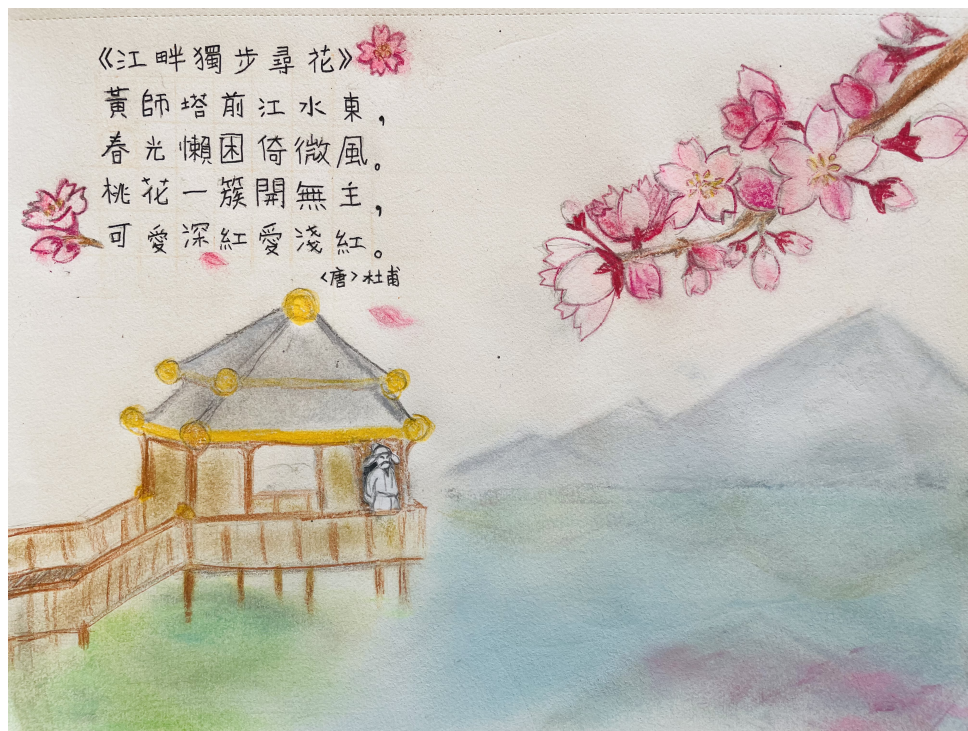 《江畔獨步尋花》
黃師塔前江水東，
春光懶困倚微風。
桃花一簇開無主，
可愛深紅愛淺紅。
〈唐〉杜甫